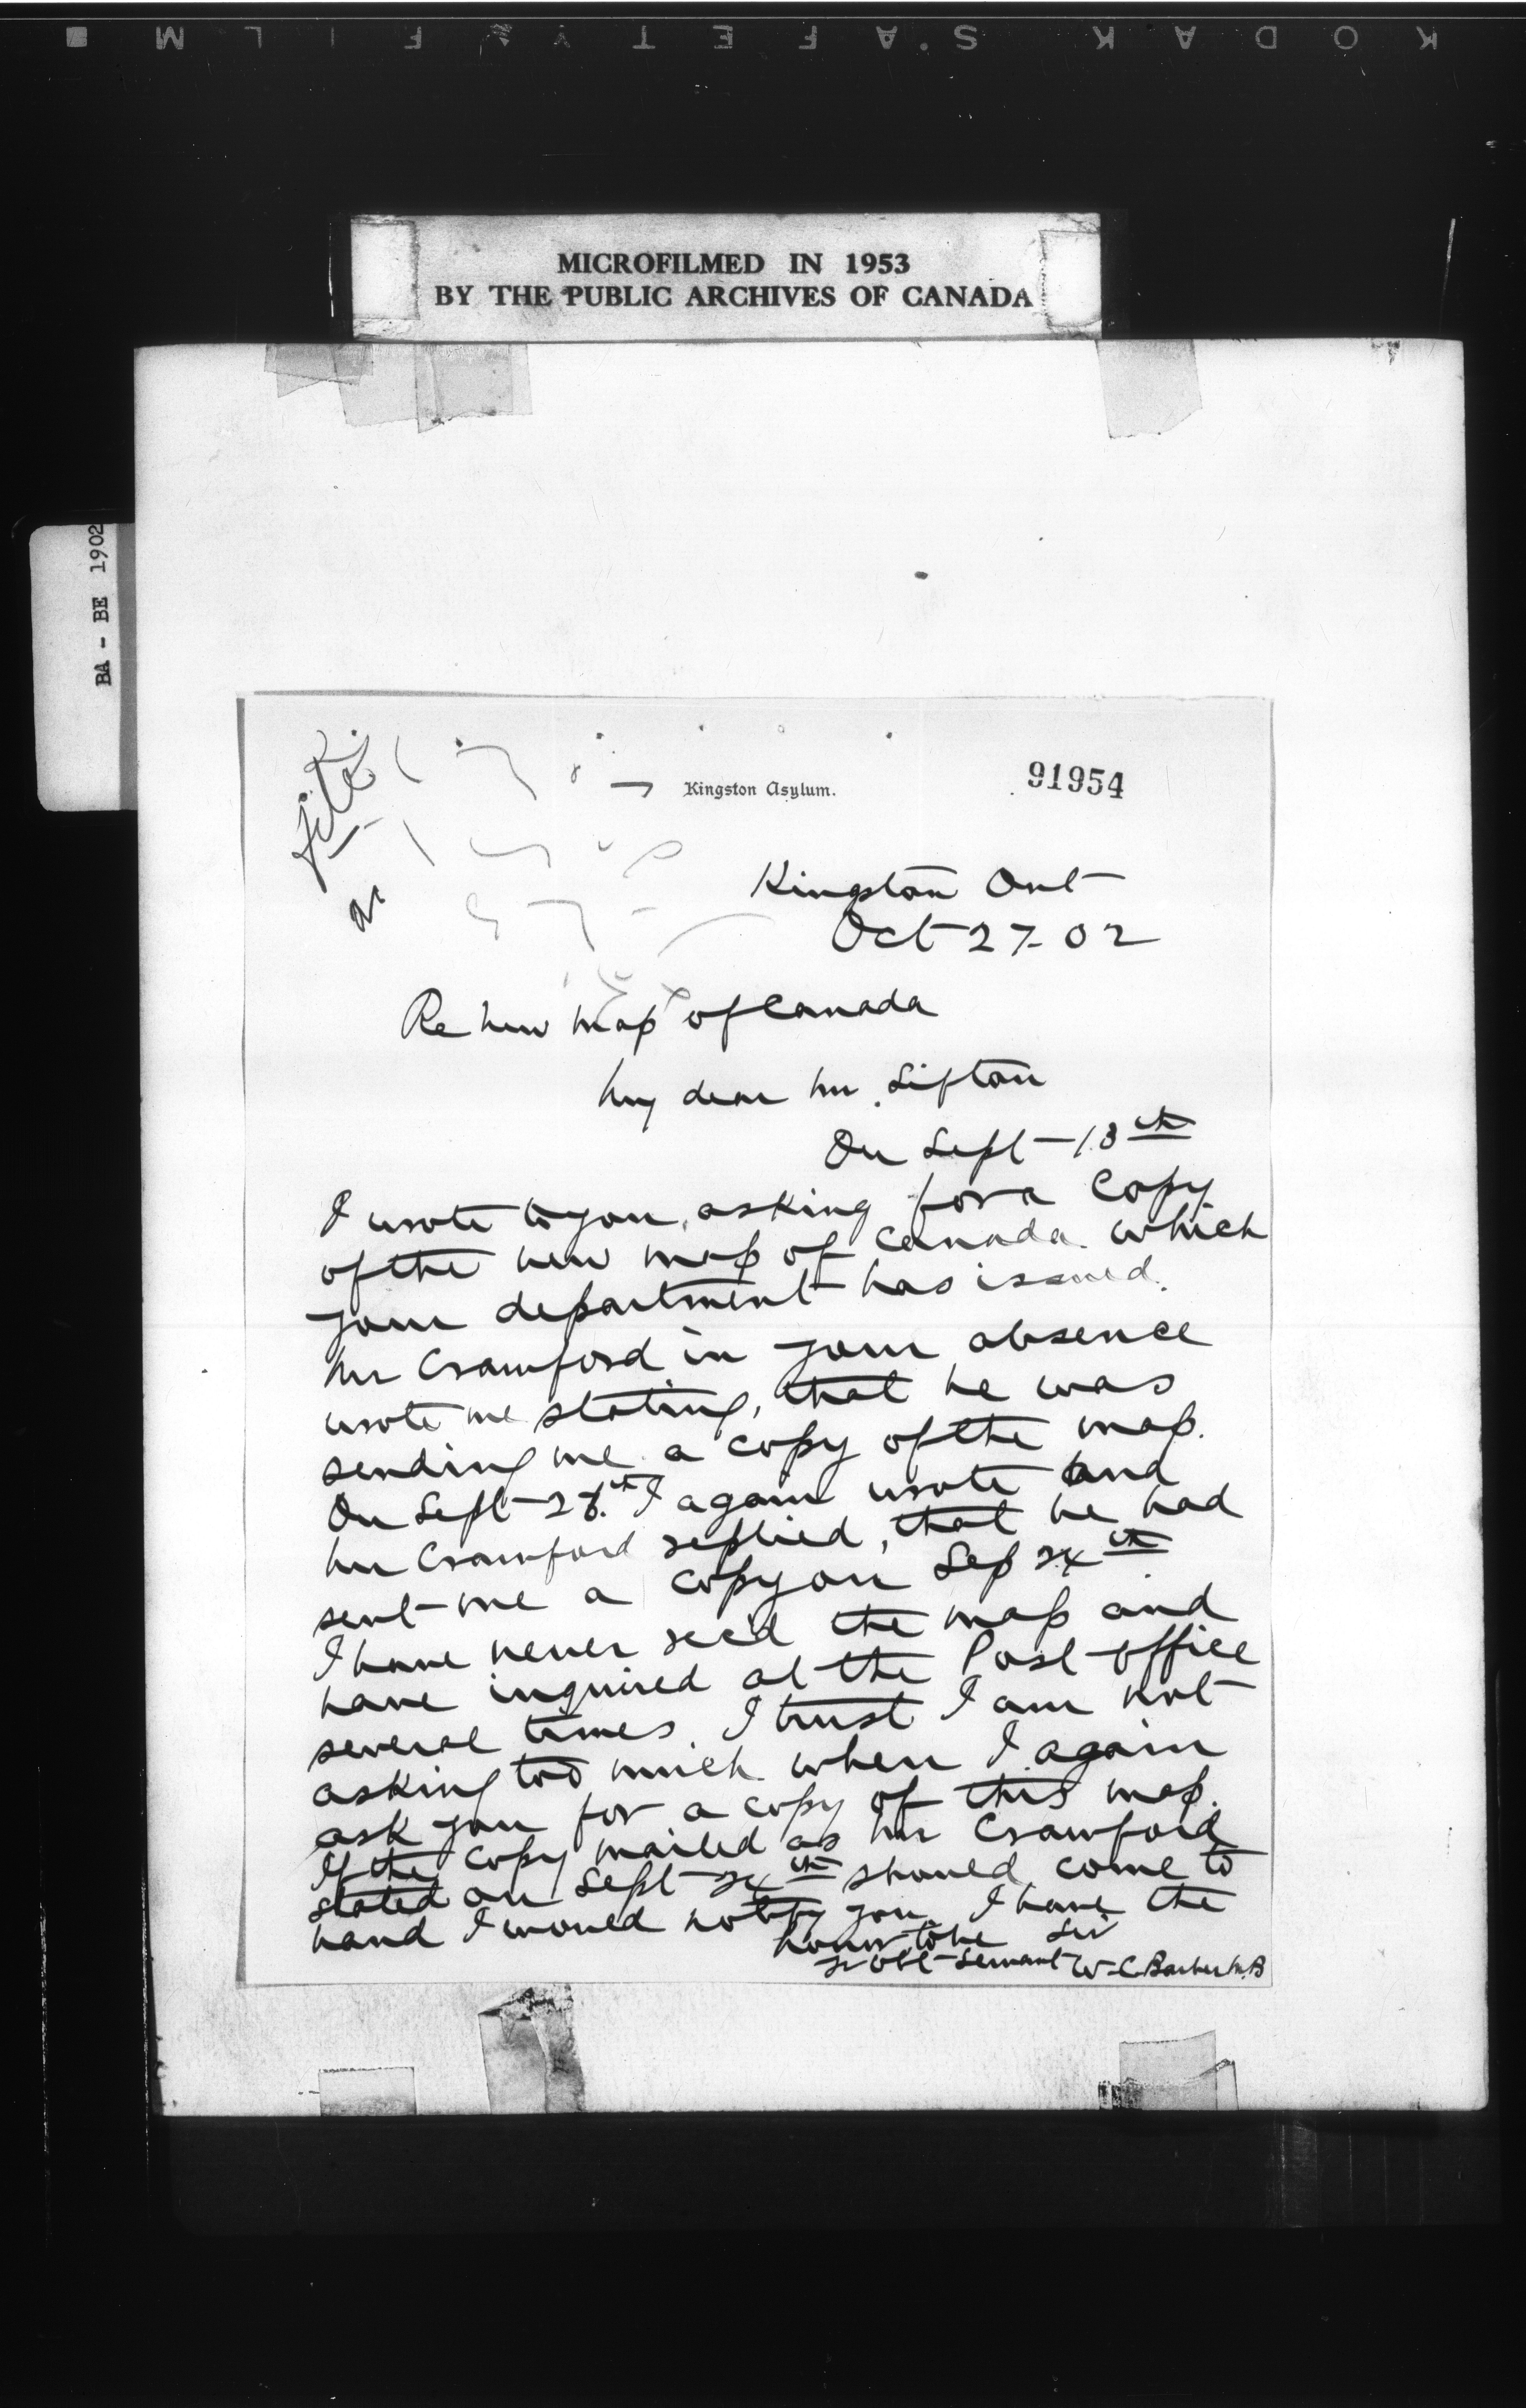 KODAK SAFETY FILM
MICROFILMED IN 1953
BY THE PUBLIC ARCHIVES OF CANADA
BA - BE 1902
file
Kingston Asylum.
91954
Kingston Ont
Oct 27-02
Re new map of Canada
My dear Mr. Sifton
On Sept-18th
I wrote to you, asking for a copy
of the new map of Canada which
your department has issued.
Mr Crawford in your absence
wrote me stating, that he was
sending me a copy of the map.
On Sept-28th I again wrote and
Mr Crawford replied, that he had
sent me a copy on Sep 24th.
I have never rec'd the map and
have inquired at the Post office
several times. I trust I am not
asking too much when I again
ask you for a copy of this map.
If the copy mailed as Mr Crawford
stated on Sept 24th should come to
hand I would notify you I have the
honor to be Sir
yr obt Servant W-C Barber M.B